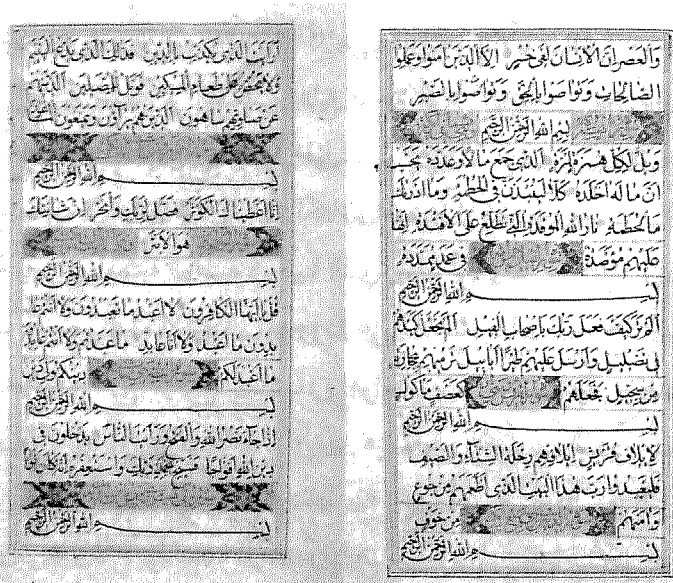 والعصر ان الانسان لفى خسر الا الذين امنوا وعملوا
الصالحات وتواصوا بالحق وتواصوا بالصبر
بسم الله الرحمن الرحيم
ويل لكل همزة لمزة الذى جمع مالا وعدده يحسب
ان ماله اخلده كلا لينبذن فى الحطمة وما ادريك
ما الحطمة نار الله الموقدة التى تطلع على الافئدة انها
عليهم موصدة فى عمد ممددة
بسم الله الرحمن الرحيم
الم تر كيف فعل ربك باصحاب الفيل الم يجعل كيدهم
فى تضليل وارسل عليهم طيرا ابابيل ترميهم بحجارة
من سجيل فجعلهم كعصف ماكول
بسم الله الرحمن الرحيم
لايلاف قريش ايلافهم رحلة الشتاء والصيف
فليعبدوا رب هذا البيت الذى اطعمهم من جوع
وامنهم من خوف
بسم الله الرحمن الرحيم
ارايت الذى يكذب بالدين فذلك الذى يدع اليتيم
ولا يحض على طعام المسكين فويل للمصلين الذين هم
عن صلوتهم ساهون الذين هم يراؤن ويمنعون الماعون
بسم الله الرحمن الرحيم
انا اعطيناك الكوثر فصل لربك وانحر ان شانئك
هو الابتر
بسم الله الرحمن الرحيم
قل يا ايها الكافرون لا اعبد ما تعبدون ولا انتم عا
بدون ما اعبد ولا انا عابد ما عبدتم ولا انتم عابدون
ما اعبد لكم دينكم ولى دين
بسم الله الرحمن الرحيم
اذا جاء نصر الله والفتح ورايت الناس يدخلون فى
دين الله افواجا فسبح بحمد ربك واستغفره انه كان توابا
بسم الله الرحمن الرحيم